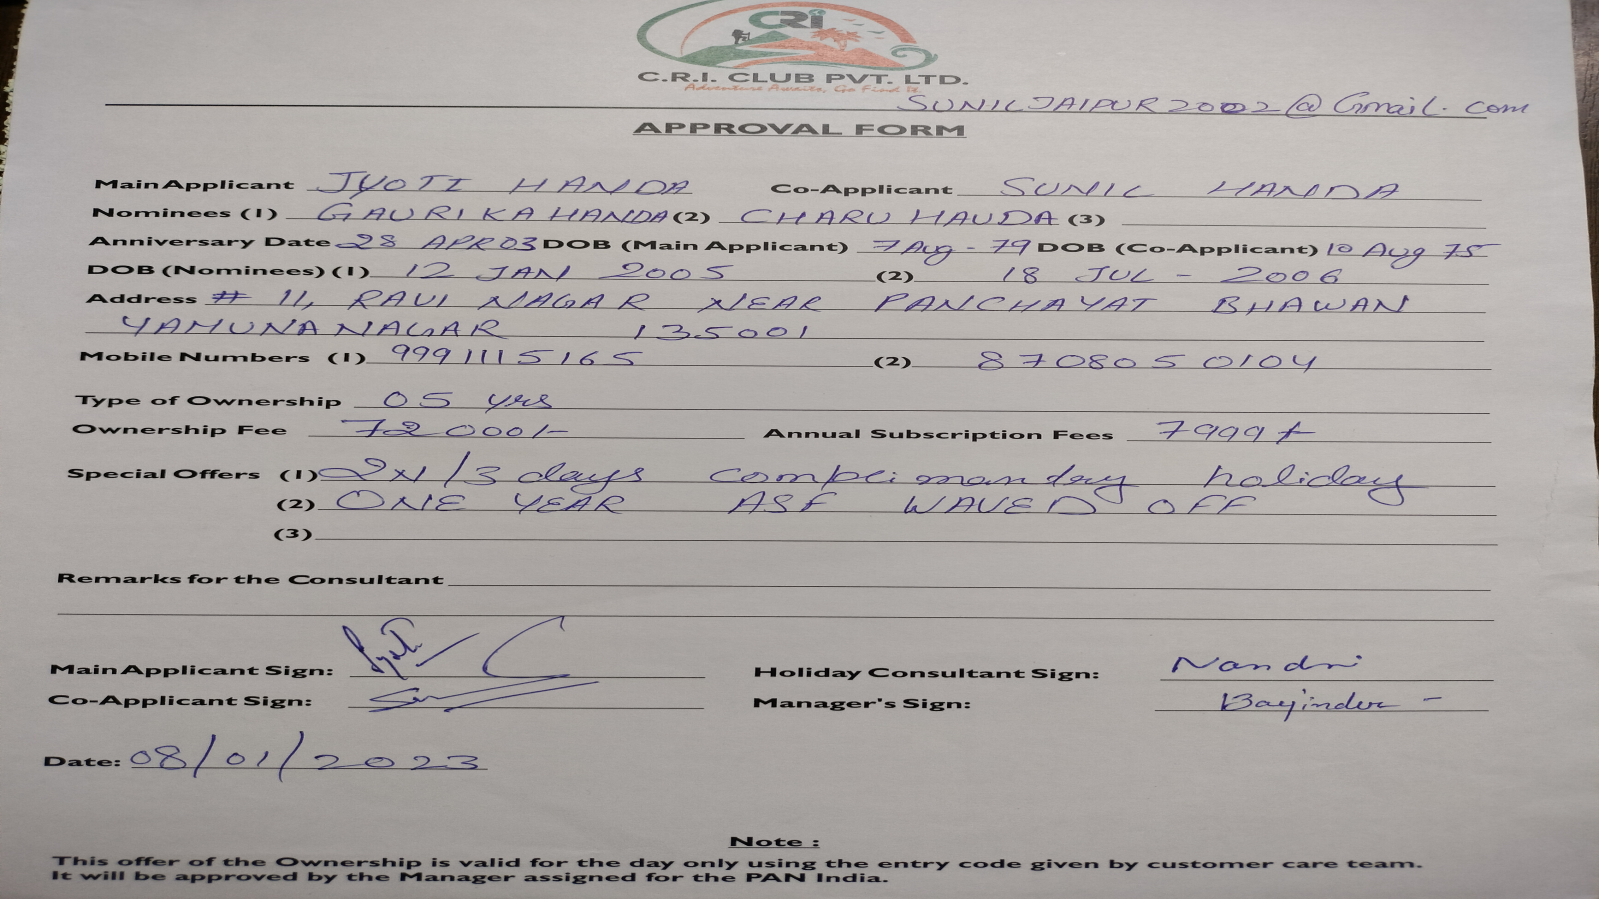 CRi
C.R.I. CLUB PVT. LTD.
Adventure Awaits, Go Find It.
SUNILJAIPUR2002@Gmail.com
APPROVAL FORM
Main Applicant JYOTI HANDA Co-Applicant SUNIL HANDA
Nominees (1) GAURIKA HANDA (2) CHARU HAUDA (3)
Anniversary Date 28 APR 03 DOB (Main Applicant) 7 Aug - 79 DOB (Co-Applicant) 10 Aug 75
DOB (Nominees) (1) 12 JAN 2005 (2) 18 JUL - 2006
Address # 11, RAVI NAGAR NEAR PANCHAYAT BHAWAN
YAMUNA NAGAR 135001
Mobile Numbers (1) 9991115165 (2) 8708050104
Type of Ownership 05 yrs
Ownership Fee 72000/- Annual Subscription Fees 7999/-
Special Offers (1) 2N/3 days complimandry holiday
(2) ONE YEAR ASF WAVED OFF
(3)
Remarks for the Consultant
Main Applicant Sign: Jyoti Holiday Consultant Sign: Nandni
Co-Applicant Sign: Manager's Sign: Bayinder -
Date: 08/01/2023
Note :
This offer of the Ownership is valid for the day only using the entry code given by customer care team.
It will be approved by the Manager assigned for the PAN India.